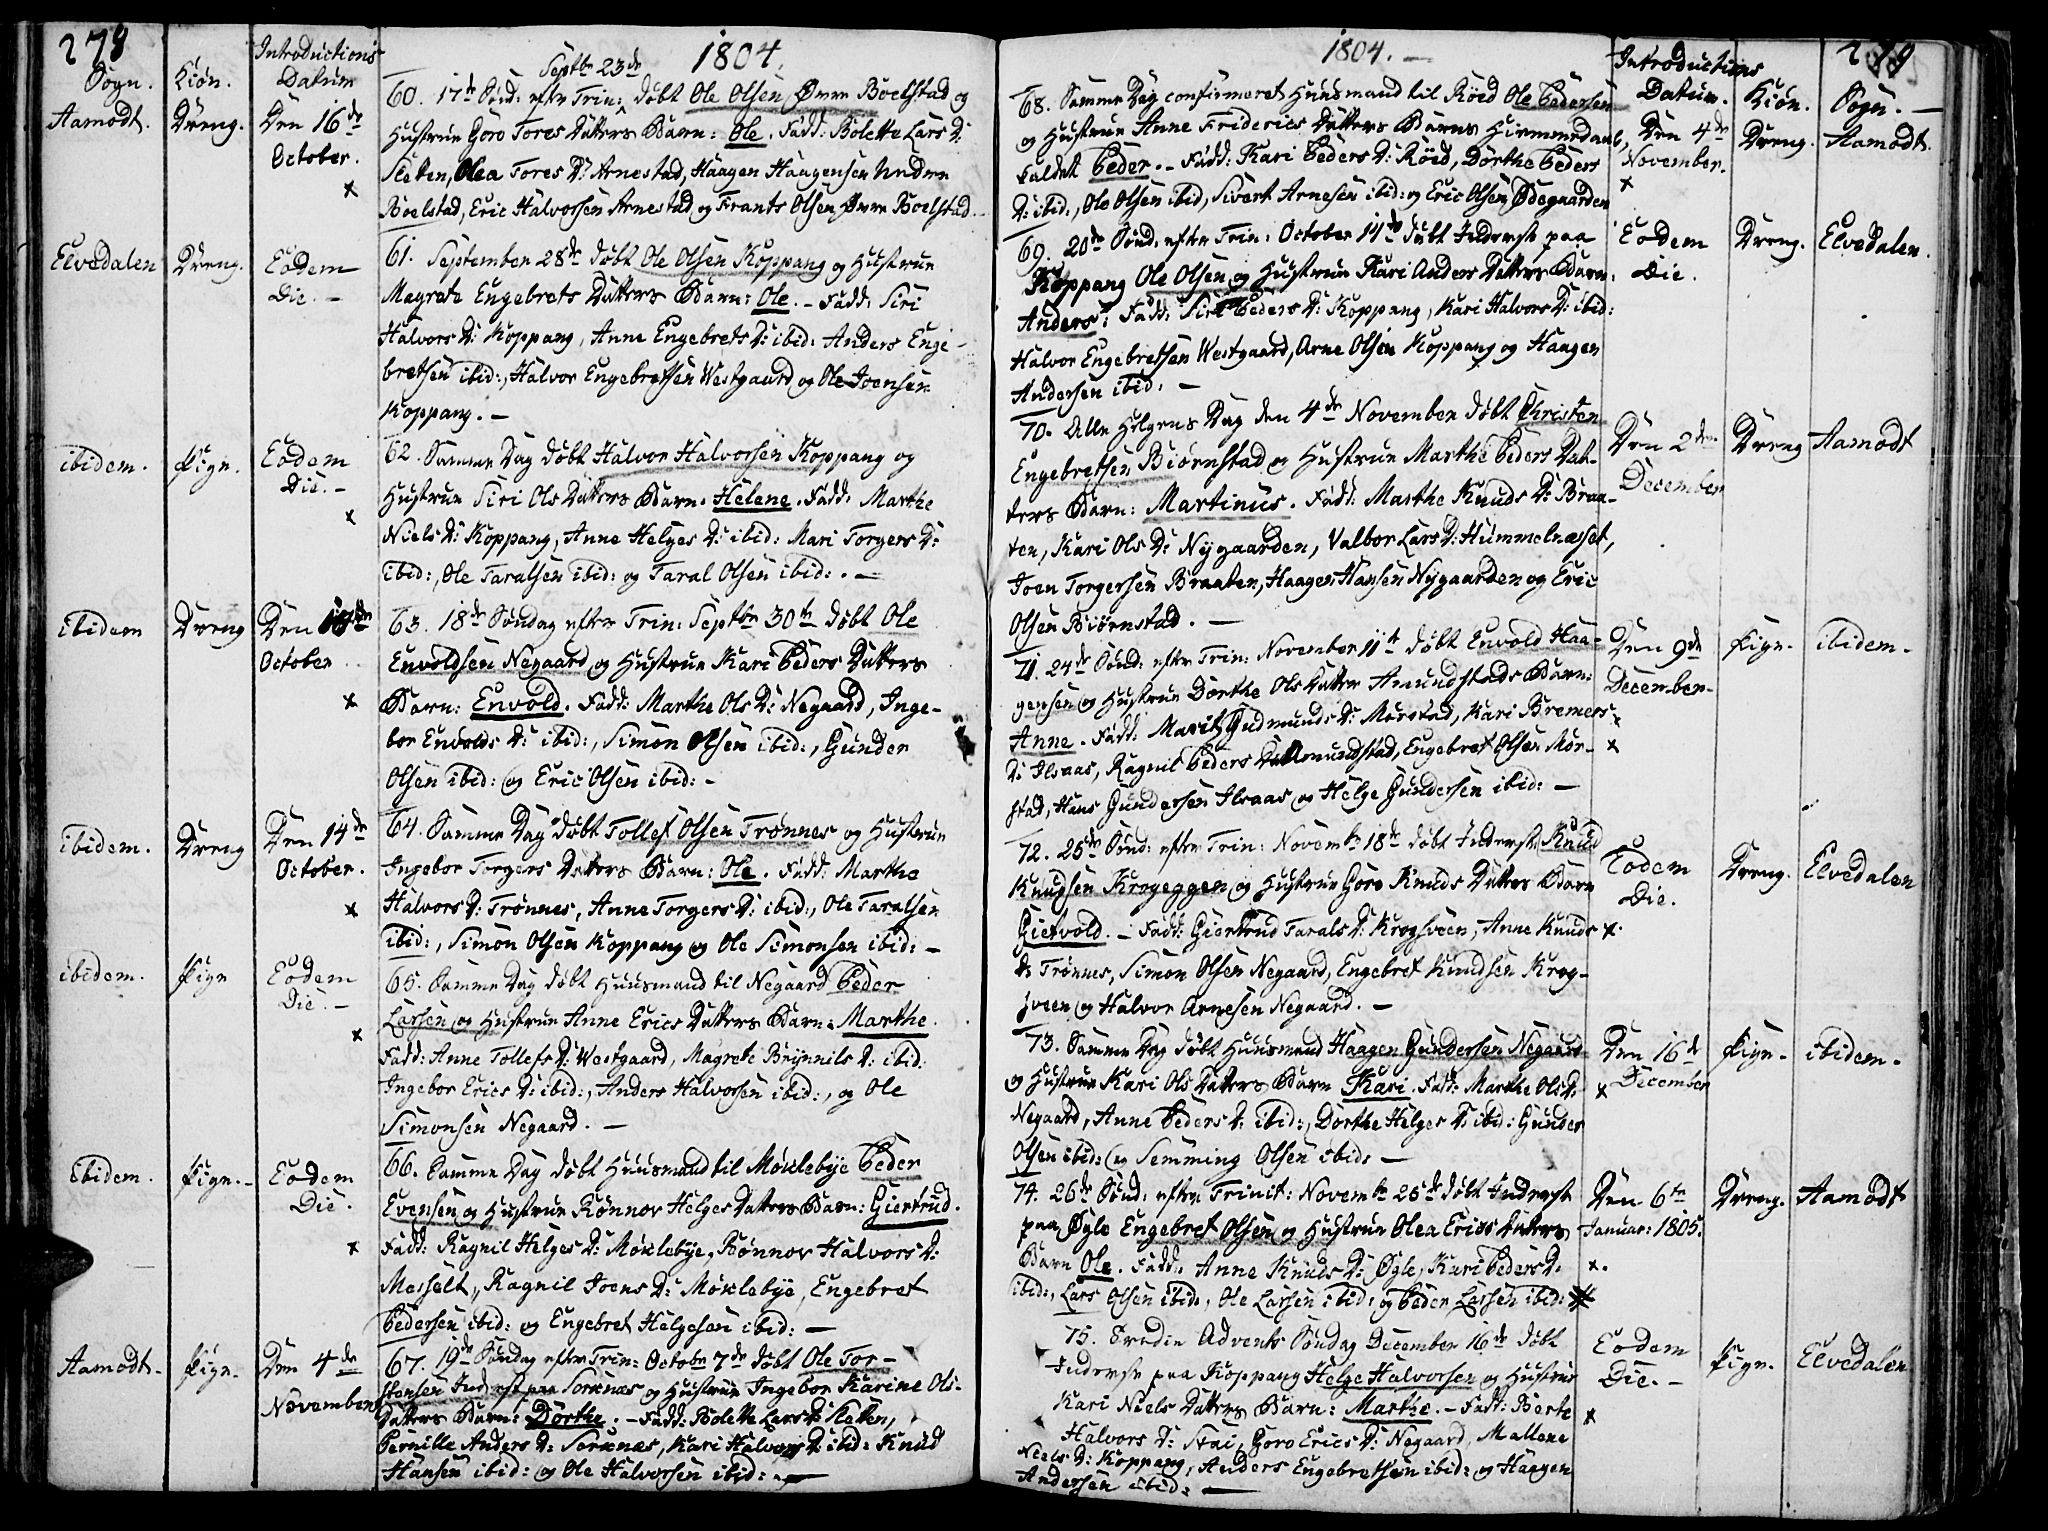 278
Sogn.
Kiøn.
Introductions
Datum
1804.
Septbr 23de
Aamodt.
Dreng.
Den 16de
October.
60. 17de Sønd: efter Trin: døbt Ole Olsen Øvre Boelstad og
Hustrue Goro Tores Datters Barn: Ole. Fadd: Bolette Lars D:
Sleten, Olea Tores D: Arnestad, Haagen Haagensen Nedre
Boelstad, Eric Halvorsen Arnestad og Frants Olsen Øvre Boelstad.
Elvedalen
Dreng.
Eodem
Die. –
61. September 28de døbt Ole Olsen Koppang og Hustrue
Magrete Engebrets Datters Barn: Ole. – Fadd: Siri
Halvors D: Koppang, Anne Engebrets D: ibid: Anders Enge-
bretsen ibid:, Halvor Engebretsen Westgaard og Ole Joensen
Koppang. –
ibidem.
Pige.
Eodem
Die. –
62. Samme Dag døbt Halvor Halvorsen Koppang og
Hustrue Siri Ols Datters Barn. Helene. Fadd: Marthe
Niels D: Koppang, Anne Helges D: ibid: Mari Torgers D:
ibid:, Ole Taralsen ibid: og Taral Olsen ibid: . –
ibidem
Dreng
Den
October
63. 18de Søndag efter Trin: Septbr 30te døbt Ole
Envoldsen Negaard og Hustrue Kari Peders Datters
Barn: Envold. Fadd: Marthe Ols D: Negaard, Inge-
bor Envolds D: ibid:, Simon Olsen ibid:, Gunder
Olsen ibid: og Eric Olsen ibid: –
ibidem.
Dreng
Den 14de
October.
64. Samme Dag døbt Tollef Olsen Trønnes og Hustrue
Ingebor Torgers Datters Barn: Ole. Fadd: Marthe
Halvors D: Trønnes, Anne Torgers D: ibid:, Ole Taralsen
ibid:, Simon Olsen Koppang og Ole Simonsen ibid: –
ibidem.
Pige
Eodem
Die. –
65. Samme Dag døbt Huusmand til Negaard Peder
Larsen og Hustrue Anne Erics Datters Barn: Marthe.
Fadd: Anne Tollefs D: Westgaard, Magrete Brynnils D: ibid:
Ingebor Erics D: ibid:, Anders Halvorsen ibid:, og Ole
Simonsen Negaard. –
ibidem.
Pige. –
Eodem
Die.
66. Samme Dag døbt Huusmand til Møklebye Peder
Evensen og Hustrue Rønnov Helges Datters Barn: Giertrud.
Fadd: Ragnil Helges D: Møklebye, Rønnov Halvors D:
Messelt, Ragnil Joens D: Møklebye, Engebret
Pedersen ibid: og Engebret Helgesen ibid: –
Aamodt.
Pige.
Den 4de
November
67. 19de Søndag efter Trin: Octobr 7de døbt Ole Tor-
stensen Inderst paa Sorknæs og Hustrue Ingebor Karine Ols-
Datters Barn: Dorthe. – Fadd: Bolette Lars D: Sletten,
Pernille Anders D: Sorknæs, Kari Halvors D: ibid: Knud
Hansen ibid: og Ole Halvorsen ibid: –
1804. –
Introductions
Datum.
Kiøn.
279
Sogn. –
68. Samme Dag confirmeret Huusmand til Röed Ole Pedersen
og Hustrue Anne Friderics Datters Barns Hiemmedaab,
kaldet Peder. – Fadd: Kari Peders D: Röed, Dorthe Peders
D: ibid:, Ole Olsen ibid, Sivert Arnesen ibid: og Eric Olsen Ødegaarden
Den 4de
November.
Dreng.
Aamodt.
69. 20de Sønd: efter Trin: October 14de døbt Inderst paa
Koppang Ole Olsen og Hustrue Kari Anders Datters Barn:
Anders: Fadd: Siri Peders D: Koppang, Kari Halvors D: ibid:
Halvor Engebretsen Westgaard, Arne Olsen Koppang og Haagen
Andersen ibid: –
Eodem
Die.
Dreng.
Elvedalen.
70. Alle Helgens Dag den 4de November døbt Christen
Engebretsen Biørnstad og Hustrue Marthe Peders Dat-
ters Barn: Martinus. Fadd: Marthe Knuds D: Braa-
ten, Kari Ols D: Nygaarden, Valbor Lars D: Hummelnæsset,
Joen Torgersen Braaten, Haagen Hansen Nygaarden og Eric
Olsen Biørnstad. –
Den 2den
December
Dreng
Aamodt
71. 24de Sønd: efter Trin: November 11te døbt Envold Haa-
gensen og Hustrue Dorthe Ols Datter Amundstads Barn:
Anne. Fadd: Marit Gudmunds D: Mørstad, Kari Bremers
D: Ilsaas, Ragnil Peders Dat Amundstad, Engebret Olsen Mør-
stad, Hans Gundersen Ilsaas og Helge Gundersen ibid: –
Den 9de
December.
Pige.
ibidem.
72. 25de Sønd: efter Trin: Novembr 18de døbt Inderst Knud
Knudsen Krogeggen og Hustrue Goro Knuds Datters Barn
Gietvold. – Fadd: Giertrud Tarals D: Krogsveen, Anne Knuds
D: Trønnes, Simon Olsen Negaard, Engebret Knudsen Krog-
sveen og Halvor Arnesen Negaard. –
Eodem
Die.
Dreng.
Elvedalen
73. Samme Dag døbt Huusmand Haagen Gundersen Negaard
og Hustrue Kari Ols Datters Barn Kari. Fadd: Marthe Ols D:
Negaard, Anne Peders D: ibid:, Dorthe Helges D: ibid: Gunder
Olsen ibid: og Semming Olsen ibid: –
Den 16de
December
Pige.
ibidem.
74. 26de Sønd: efter Trinit: Novembr 25de døbt Inderst
paa Øgle Engebret Olsen og Hustrue Olea Erics Datters
Barn Ole. Fadd: Anne Knuds D: Øgle, Kari Peders D:
ibid:, Lars Olsen ibid:, Ole Larsen ibid: og Peder Larsen ibid:
Den 6te
Januar: 1805.
Dreng.
Aamodt
75. Tredie Advents Søndag December 16de døbt
Inderst paa Koppang Helge Halvorsen og Hustrue
Kari Niels Datters Barn: Marthe. – Fadd: Berte
Halvors D: Stai, Goro Erics D: Negaard, Mallene
Niels D: Koppang, Anders Engebretsen ibid: og Haagen
Andersen ibid: –
Eodem
Die. –
Pige.
Elvedalen